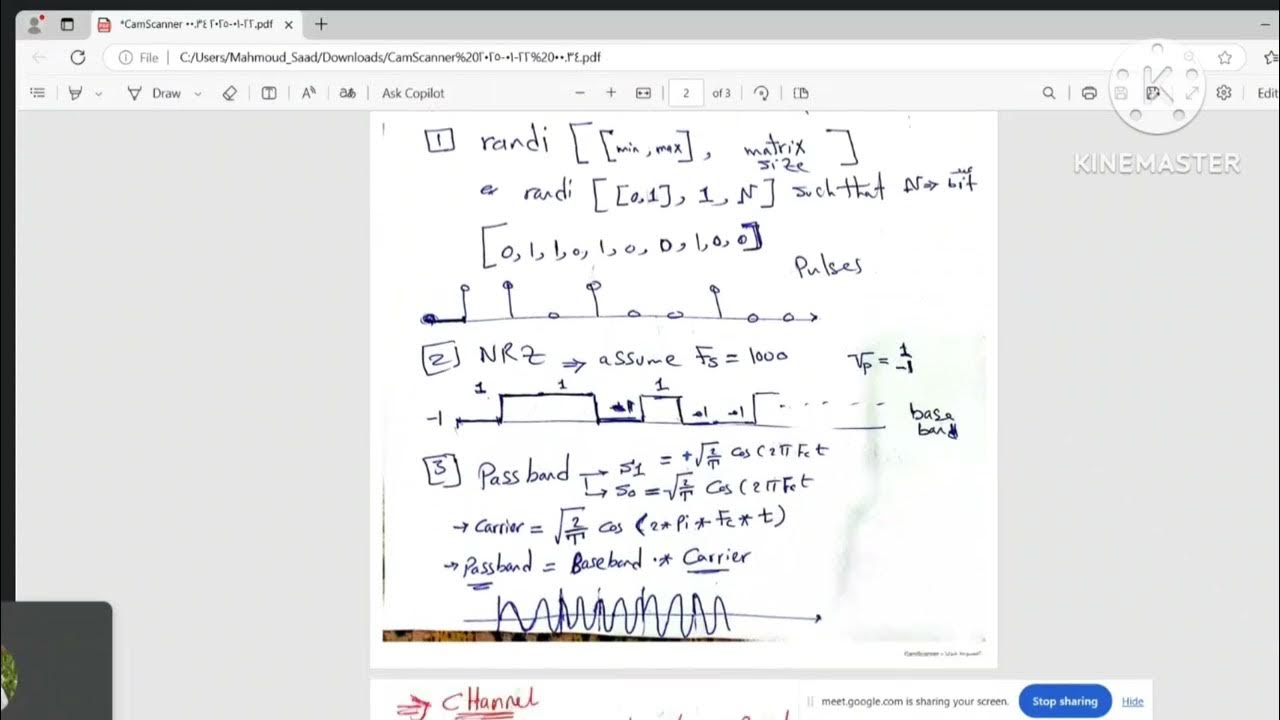 *CamScanner ٠٠.٣٤ ٢٠٢٥-٠١-٢٢.pdf
File | C:/Users/Mahmoud_Saad/Downloads/CamScanner%20٢٠٢٥-٠١-٢٢%20٠٠.٣٤.pdf
Draw Ask Copilot 2 of 3 Edit
KINEMASTER
1 randi [[min, max], matrix size]
randi [[0,1], 1, N] such that N => bit
[0, 1, 1, 0, 1, 0, 0, 1, 0, 0]
Pulses
2 NRZ => assume Fs = 1000 Vp = 1 -1
1 1 1
-1 -1 -1 -1
base band
3 Passband → S1 = +√2/T cos(2πFct
↳ S0 = -√2/T cos(2πFct
→ Carrier = √2/T cos (2*Pi*Fc*t)
→ Passband = Baseband .* Carrier
=> CHannel
meet.google.com is sharing your screen. Stop sharing Hide